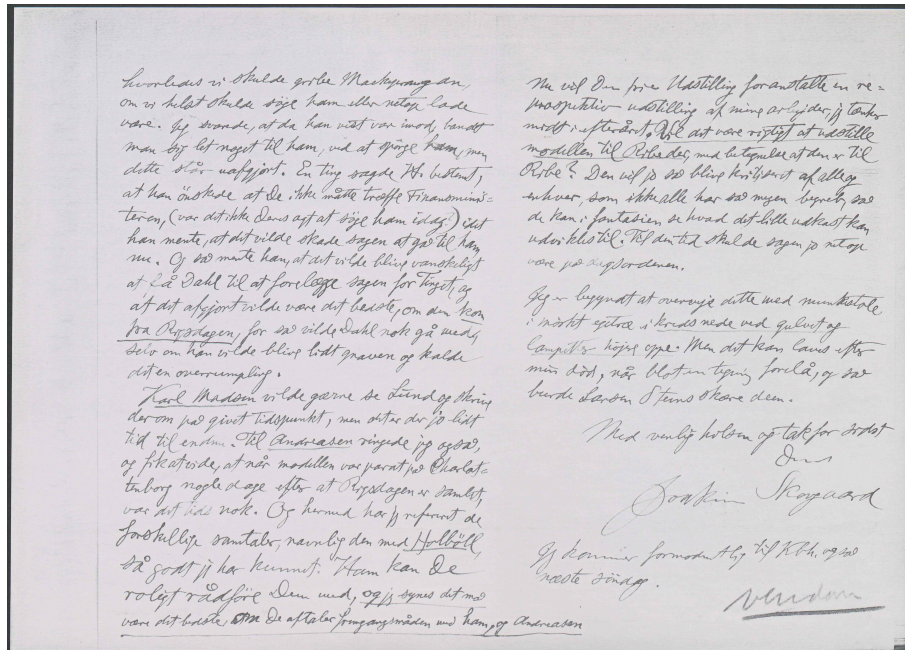 hvorledes vi skulde gribe Mackeprang an,
om vi helst skulde söge ham eller netop lade
være. Jeg svarede, at da han vist var imod, bandt
man sig let noget til ham, ved at spörge ham, men
dette står uafgjort. En ting sagde H. bestemt,
at han önskede at De ikke måtte træffe Finansmini=
steren, (var det ikke Deres agt at söge ham idag?) idet
han mente, at det vilde skade sagen at gå til ham
nu. Og så mente han, at det vilde blive vanskeligt
at få Dahl til at forelægge sagen for Tinget, og
at det afgjort vilde være det bedste, om den kom
fra Rigsdagen, for så vilde Dahl nok gå med,
selv om han vilde blive lidt gnaven og kalde
det en overrumpling.
Karl Madsen vilde gærne se Lund og skrive
derom på givet tidspunkt, men det er der jo lidt
tid til endnu. Til Andreasen ringede jeg også,
og fik at vide, at når modellen var parat på Charlot=
tenborg nogle dage efter at Rigsdagen er samlet,
var det tids nok. Og hermed har jeg refereret de
forskellige samtaler, navnlig den med Holböll,
så godt jeg har kunnet. Ham kan De
roligt rådföre Dem med, og jeg synes det må
være det bedste, om De aftaler fremgangsmåden med ham, og Andreasen
Nu vil Den frie Udstilling foranstalte en re=
trospektiv udstilling af mine arbejder, jeg tænker
midt i efteråret. Vil det være rigtigt at udstille
modellen til Ribe der, med betegnelse at den er til
Ribe? Den vil jo så blive kritiseret af alle og
enhver, som ikke alle har så megen begreb, så
de kan i fantasien se hvad det lille udkast kan
udvikles til. Til den tid skulde sagen jo netop
være på dagsordenen.
Jeg er begyndt at overveje dette med munkestole
i mörkt egetræ i kreds nede ved gulvet og
höjere oppe. Men det kan laves efter
min död, når blot en tegning forelå, og så
burde Larsen Stevns skære dem.
Med venlig hilsen og tak for sidst
Deres
Joakim Skovgaard
Jeg kommer formodentlig til Kbh. også
næste söndag.